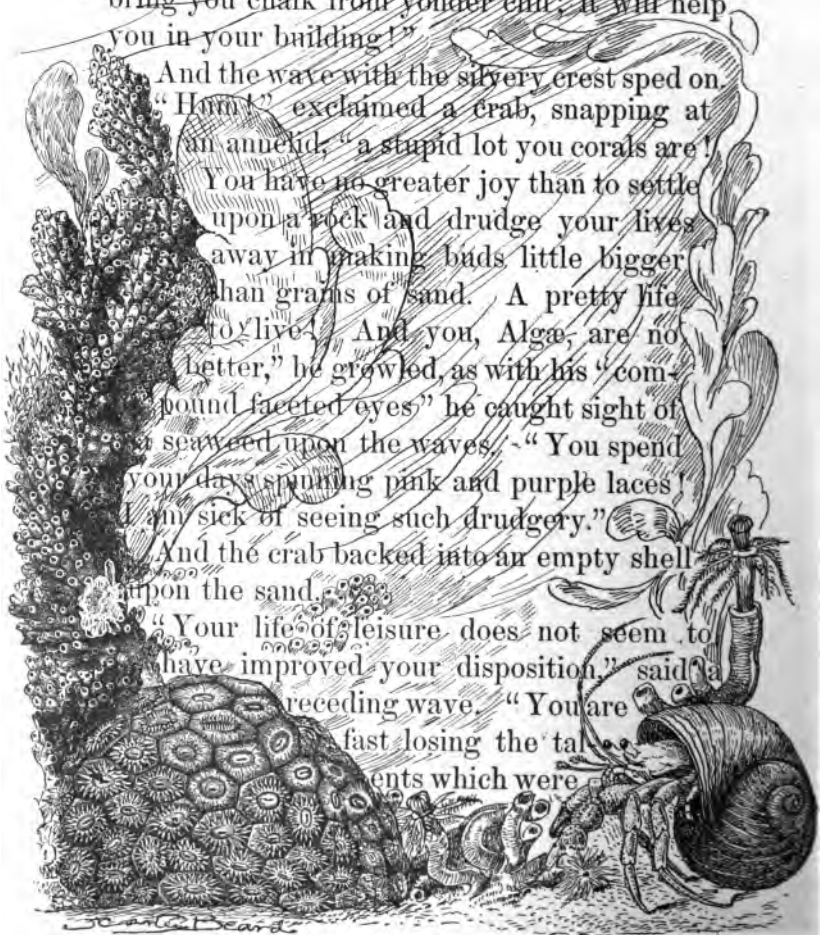 bring you chalk from yonder cliff; it will help
you in your building!"
And the wave with the silvery crest sped on.
"Hum!" exclaimed a crab, snapping at
an annelid; "a stupid lot you corals are!
You have no greater joy than to settle
upon a rock and drudge your lives
away in making buds little bigger
than grains of sand. A pretty life
to live! And you, Algæ, are no
better," he growled, as with his "com-
pound faceted eyes" he caught sight of
a seaweed upon the waves. "You spend
your days spinning pink and purple laces!
I am sick of seeing such drudgery."
And the crab backed into an empty shell
upon the sand.
"Your life of leisure does not seem to
have improved your disposition," said a
receding wave. "You are
fast losing the tal-
ents which were
Beard